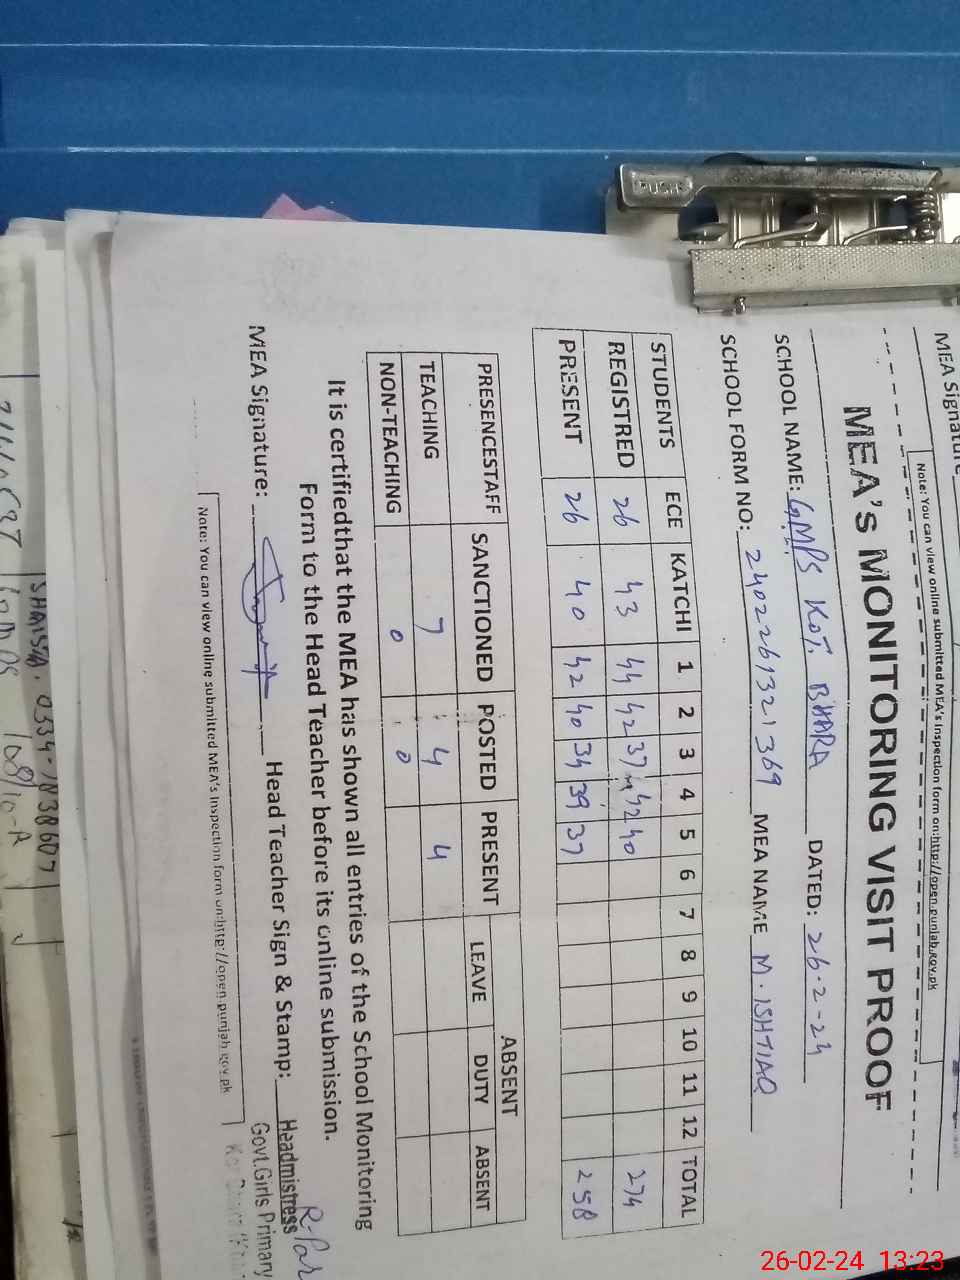 MEA Signature
Note: You can view online submitted MEA's Inspection form on:http://open.punjab.gov.pk
MEA's MONITORING VISIT PROOF
SCHOOL NAME: GMPS KOT BHARA DATED: 26-2-24
SCHOOL FORM NO: 2402261321369 MEA NAME M. ISHTIAQ
STUDENTS ECE KATCHI 1 2 3 4 5 6 7 8 9 10 11 12 TOTAL
REGISTRED 26 43 44 42 37 42 40 274
PRESENT 26 40 42 40 34 39 37 258
PRESENCESTAFF SANCTIONED POSTED PRESENT ABSENT
LEAVE DUTY ABSENT
TEACHING 7 4 4
NON-TEACHING 0 0
It is certifiedthat the MEA has shown all entries of the School Monitoring
Form to the Head Teacher before its online submission.
MEA Signature: Head Teacher Sign & Stamp:
Headmistress
Govt.Girls Primary
Note: You can view online submitted MEA's Inspection form on:http://open.punjab.gov.pk
PUSH
26-02-24 13:23